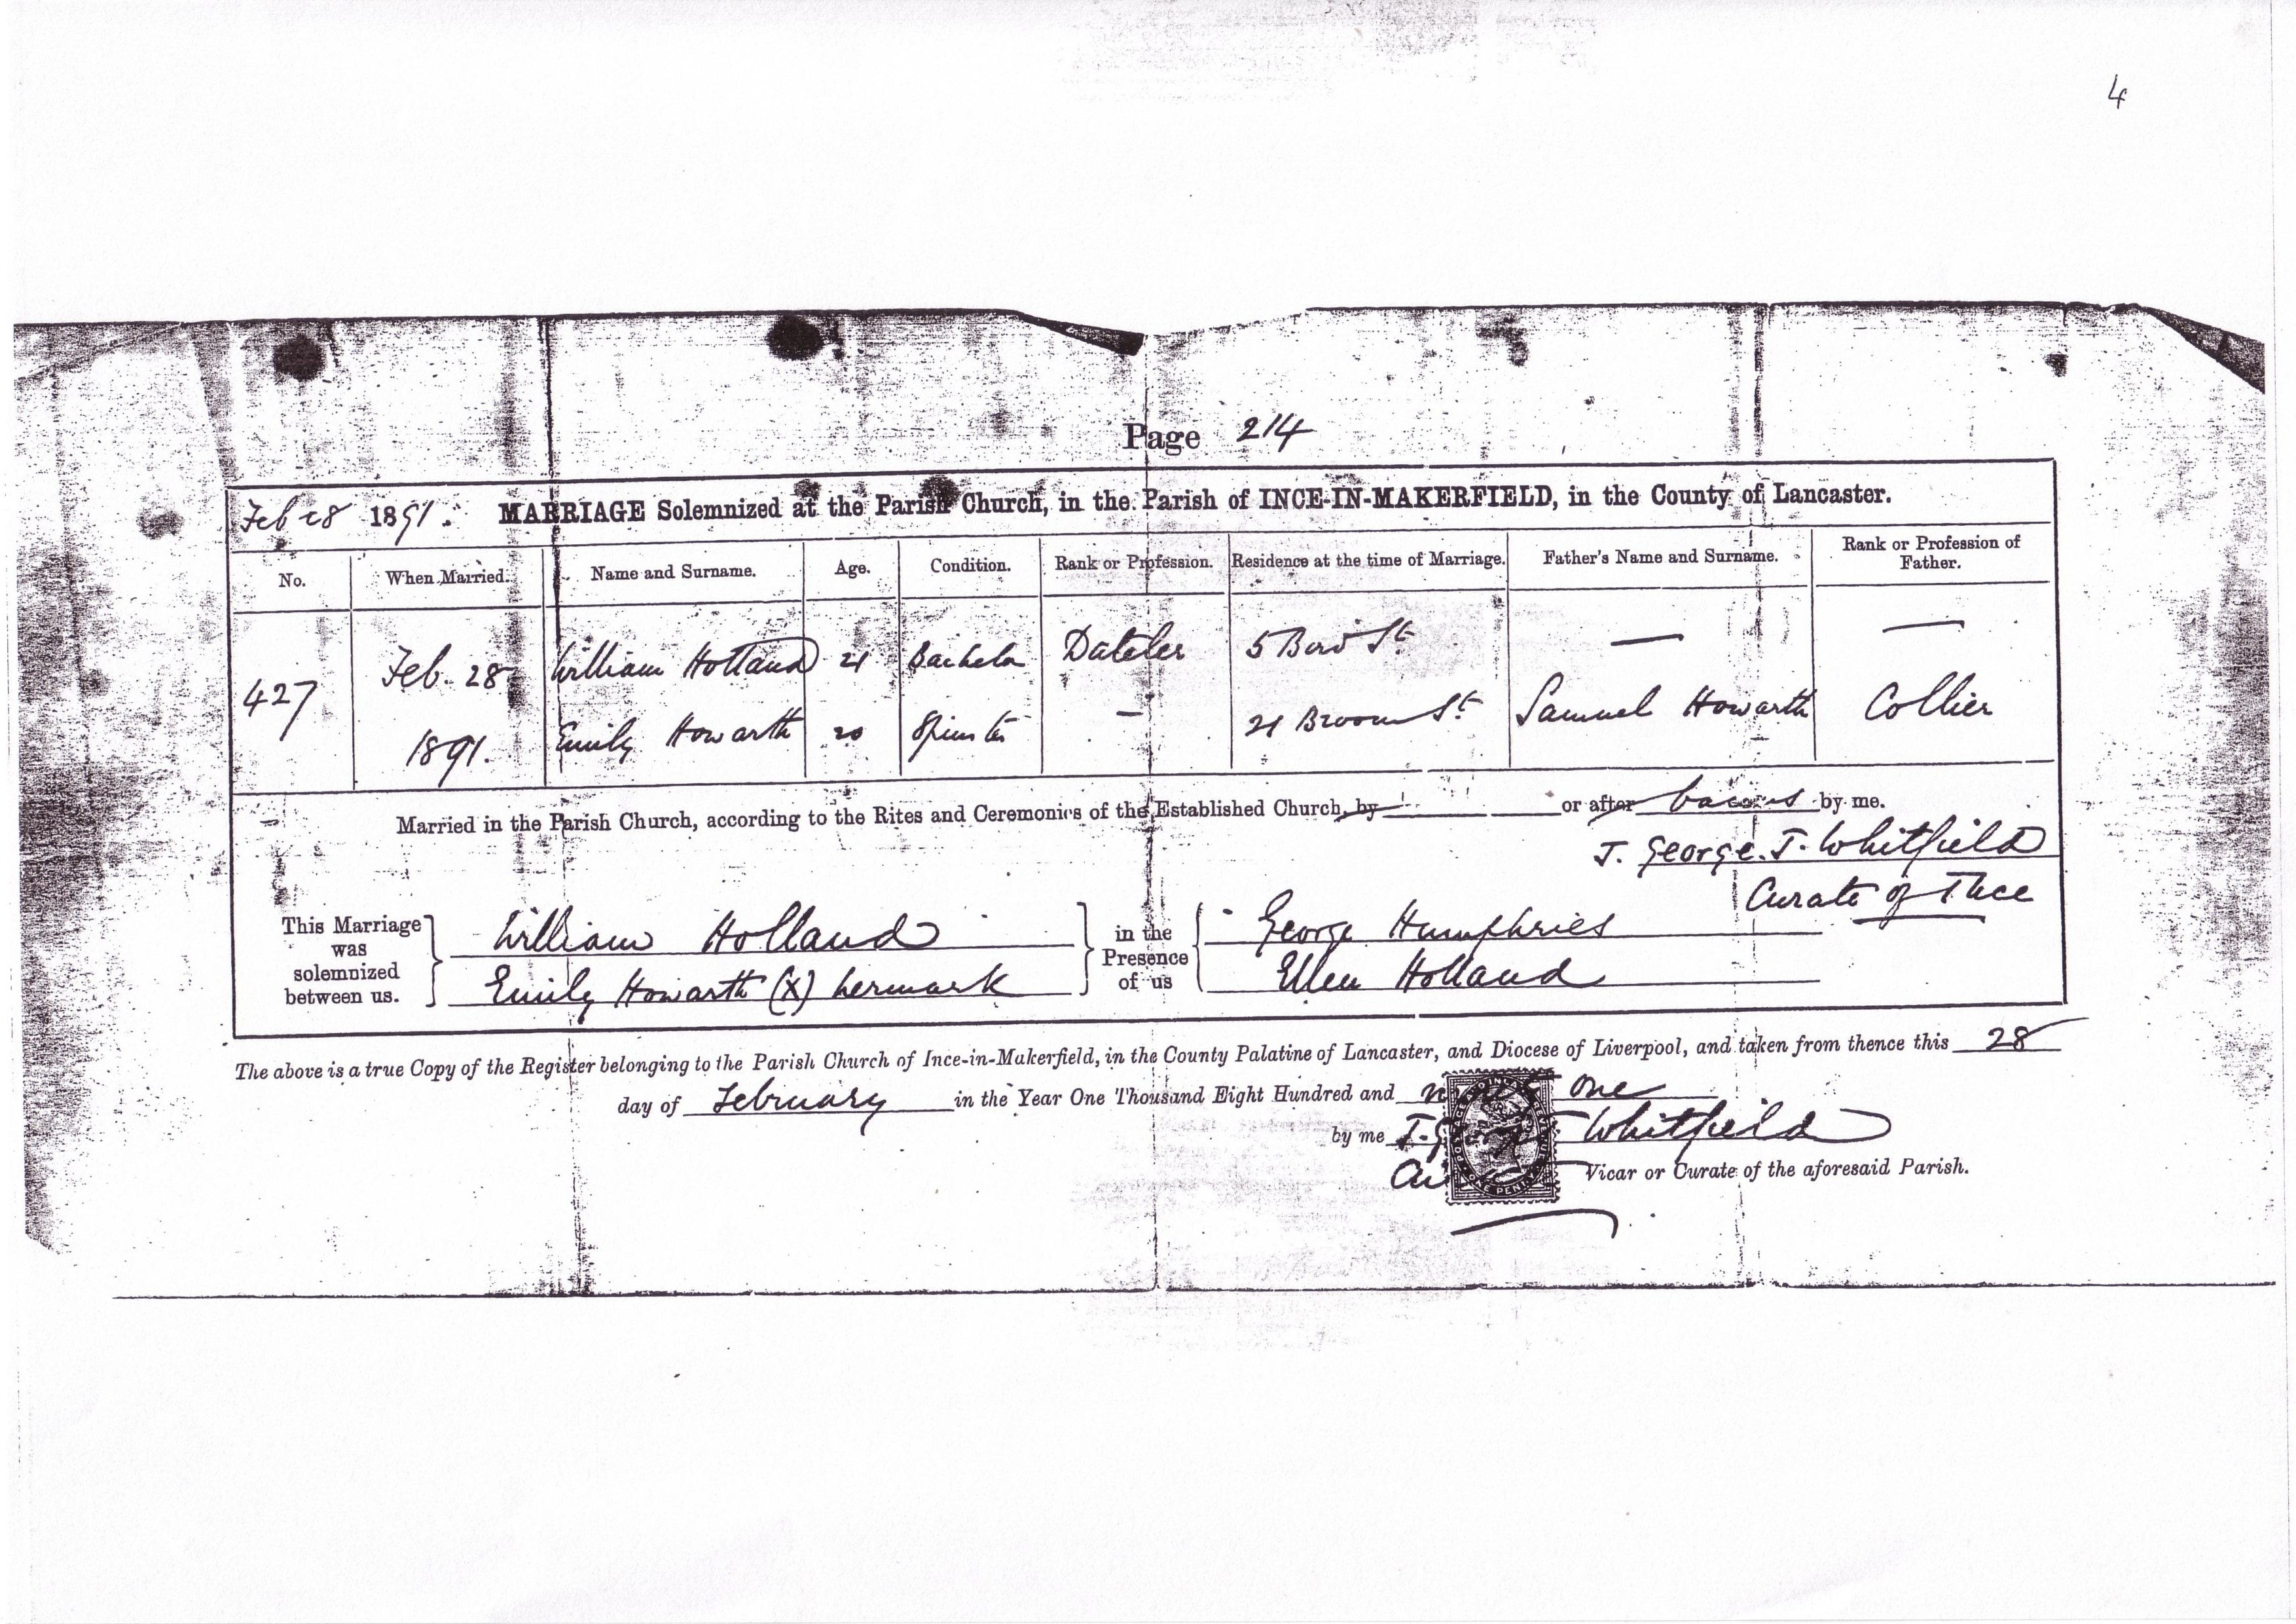 4
Page 214
Feb 28 1891. MARRIAGE Solemnized at the Parish Church, in the Parish of INCE-IN-MAKERFIELD, in the County of Lancaster.
No. When Married. Name and Surname. Age. Condition. Rank or Profession. Residence at the time of Marriage. Father's Name and Surname. Rank or Profession of Father.
427 Feb. 28 William Holland 21 Bachelor Dataler 5 St. — —
1891. Emily Howarth 20 Spinster – 21 Broom St. Samuel Howarth Collier
Married in the Parish Church, according to the Rites and Ceremonies of the Established Church, by or after banns by me.
J. George. J. Whitfield
Curate of Ince
This Marriage was solemnized between us. William Holland in the Presence of us George Humphries
Emily Howarth (X) her mark Ellen Holland
The above is a true Copy of the Register belonging to the Parish Church of Ince-in-Makerfield, in the County Palatine of Lancaster, and Diocese of Liverpool, and taken from thence this 28
day of February in the Year One Thousand Eight Hundred and one
by me Whitfield
Vicar or Curate of the aforesaid Parish.
ONE PENNY